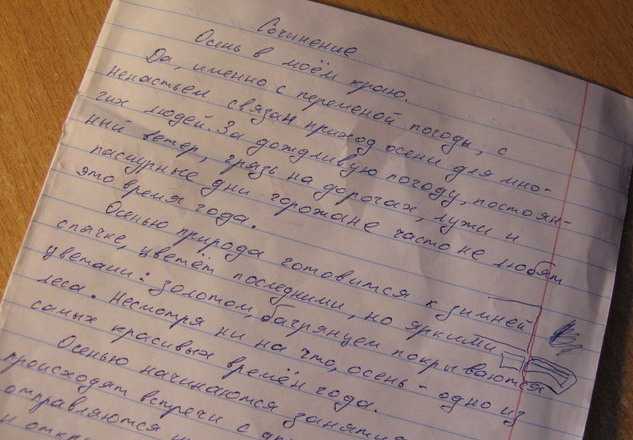 Сочинение
Осень в моём краю.
Да, именно с переменой погоды, с
ненастьем связан приход осени для мно-
гих людей. За дождливую погоду, постоян-
ный ветер, грязь на дорогах, лужи и
пасмурные дни горожане часто не любят
это время года.
Осенью природа готовится к зимней
спячке, цветёт последними, но яркими
цветами: золотом, багрянцем покрываются
леса. Несмотря ни на что, осень - одно из
самых красивых времён года.
Осенью начинаются занятия
происходят встречи с
отправляются